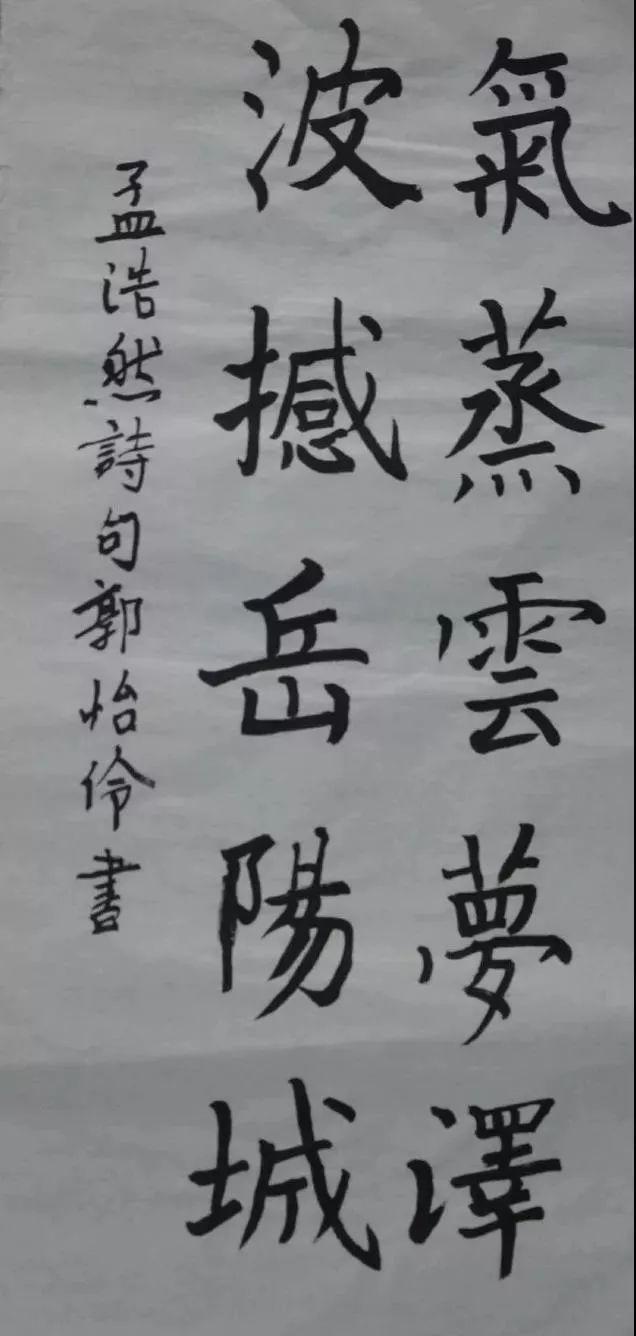 氣蒸雲夢澤
波撼岳陽城
孟浩然詩句郭怡伶書